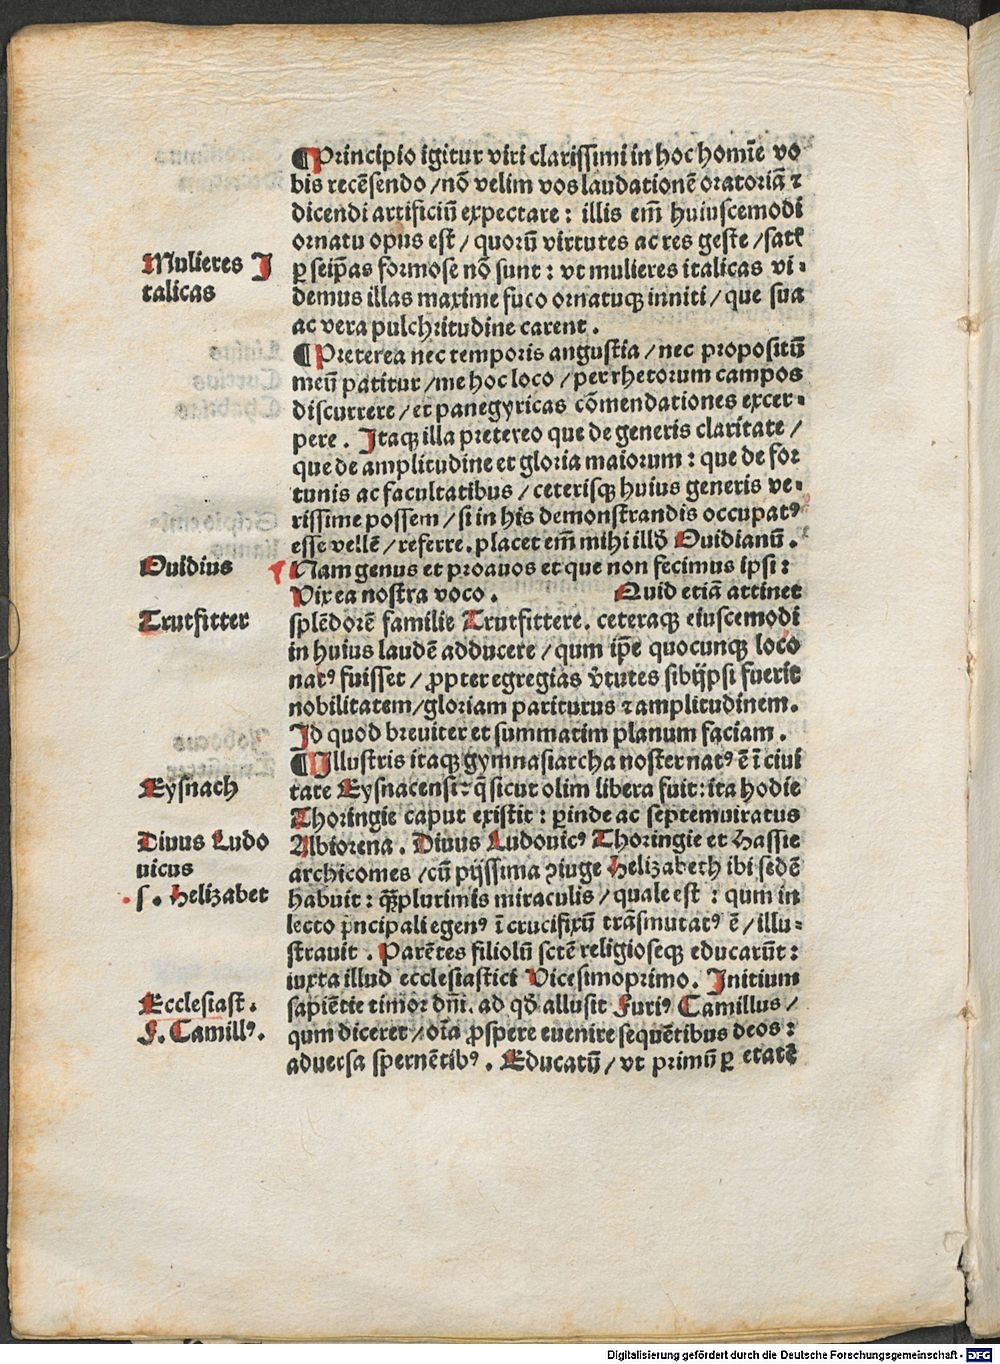 ¶Principio igitur viri clarissimi in hoc homīe vo
bis recēsendo /nō velim vos laudationē oratoriā ⁊
dicendi artificiū expectare: illis em̄ huiuscemodi
ornatu opus est / quorū virtutes ac res geste /satꝭ
Mulieres I
ꝑ seip̄as formose nō sunt: vt mulieres italicas vi⸗
talicas
demus illas maxime fuco ornatuqꝫ inniti / que sua
ac vera pulchritudine carent.
¶Preterea nec temporis angustia /nec propositū
meū patitur /me hoc loco /per rhetorum campos
discurrere /et panegyricas cōmendationes excer⸗
pere. Itaqꝫ illa pretereo que de generis claritate /
que de amplitudine et gloria maiorum: que de for
tunis ac facultatibus / ceterisqꝫ huius generis ve⸗
rissime possem / si in his demonstrandis occupatꝰ
esse vellē / referre. placet em̄ mihi illđ Ouidianū.
Ouidius
Nam genus et proauos et que non fecimus ipsi:
Vix ea nostra voco. Quid etiā attinet
Trutfitter
splēdorē familie Trutfittere. ceteraqꝫ eiuscemodi
in huius laudē adducere / qum ip̄e quocunqꝫ loco
natꝰ fuisset / ꝓpter egregias v̄tutes sibijpsi fuerit
nobilitatem/gloriam pariturus ⁊ amplitudinem.
Id quod breuiter et summatim planum faciam.
¶Illustris itaqꝫ gymnasiarcha noster natꝰ ē ī ciui
Eysnach
tate Eysnacensi: q̄ sicut olim libera fuit: ita hodie
Thoringie caput existit: ꝑinde ac septemuiratus
Diuus Ludo
Albiorena. Diuus Ludouicꝰ Thoringie et Hassie
uicus
archicomes / cū pijssima ꝯiuge Helizabeth ibi sedē
s. Helizabet
habuit: qꝫplurimis miraculis / quale est: qum in
lecto p̄ncipali egenꝰ ī crucifixū trāsmutatꝰ ē / illu⸗
strauit. Parētes filiolū sctē religioseqꝫ educarūt:
iuxta illud ecclesiastici Vicesimoprimo. Initium
Ecclesiast.
sapiētie timor dn̄i. ad qđ allusit Furiꝰ Camillus /
F. Camillꝰ.
qum diceret / oīa ꝓspere euenire sequētibus deos:
aduersa spernētibꝰ. Educatū / vt primū ꝑ etatē
Digitalisierung gefördert durch die Deutsche Forschungsgemeinschaft - DFG